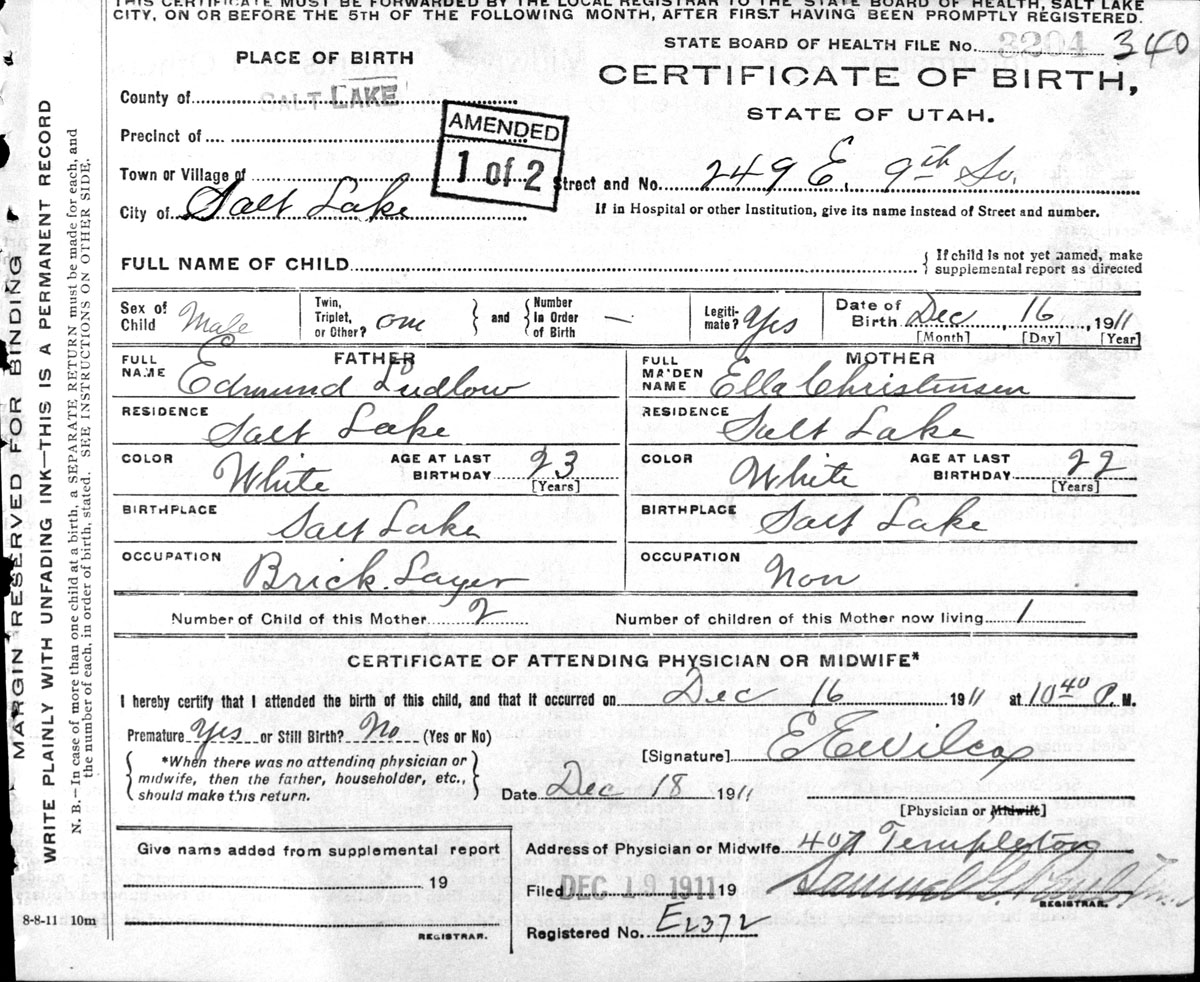 THIS CERTIFICATE MUST BE FORWARDED BY THE LOCAL REGISTRAR TO THE STATE BOARD OF HEALTH, SALT LAKE
CITY, ON OR BEFORE THE 5TH OF THE FOLLOWING MONTH, AFTER FIRST HAVING BEEN PROMPTLY REGISTERED.
STATE BOARD OF HEALTH FILE No. 3204 340
PLACE OF BIRTH
CERTIFICATE OF BIRTH,
STATE OF UTAH.
County of SALT LAKE
Precinct of
AMENDED
1 of 2
Town or Village of
Street and No. 249 E. 9th So.
City of Salt Lake
If in Hospital or other Institution, give its name instead of Street and number.
FULL NAME OF CHILD
{ If child is not yet named, make
supplemental report as directed
Sex of Child Male
Twin, Triplet, or Other? one
and
Number In Order of Birth —
Legiti-mate? Yes
Date of Birth Dec 16, 1911
[Month] [Day] [Year]
FATHER
FULL NAME Edmund E Ludlow
MOTHER
FULL MAIDEN NAME Ella Christensen
RESIDENCE Salt Lake
RESIDENCE Salt Lake
COLOR White AGE AT LAST BIRTHDAY 23 [Years]
COLOR White AGE AT LAST BIRTHDAY 22 [Years]
BIRTHPLACE Salt Lake
BIRTHPLACE Salt Lake
OCCUPATION Brick Layer
OCCUPATION Non
Number of Child of this Mother 2
Number of children of this Mother now living 1
CERTIFICATE OF ATTENDING PHYSICIAN OR MIDWIFE*
I hereby certify that I attended the birth of this child, and that it occurred on Dec 16 1911 at 10 40 P. M.
Premature Yes or Still Birth? No (Yes or No)
*When there was no attending physician or
midwife, then the father, householder, etc.,
should make this return.
[Signature] E E Wilcox
Date Dec 18 1911
[Physician or Midwife]
Give name added from supplemental report
19
REGISTRAR.
Address of Physician or Midwife 407 Templeton
Filed DEC 19 1911 19
Samuel G. Paul
REGISTRAR.
Registered No. E2372
8-8-11 10m
MARGIN RESERVED FOR BINDING
WRITE PLAINLY WITH UNFADING INK—THIS IS A PERMANENT RECORD
N. B.—In case of more than one child at a birth, a SEPARATE RETURN must be made for each, and
the number of each, in order of birth, stated. SEE INSTRUCTIONS ON OTHER SIDE.